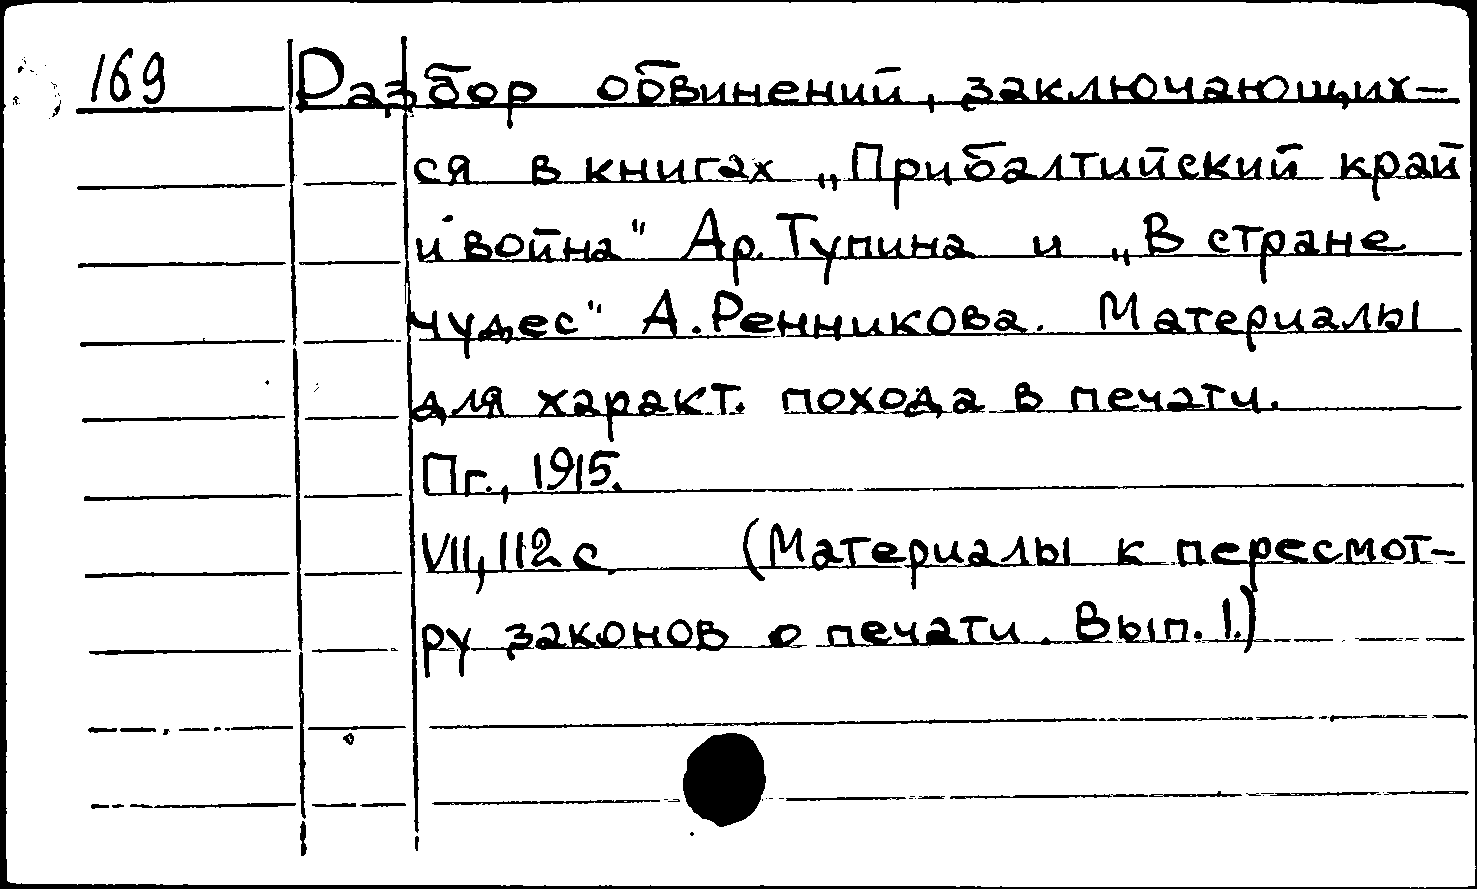 169 Разбор обвинений, заключающих-
ся в книгах „Прибалтийский край
и война" Ар. Тупина и „В стране
чудес" А. Ренникова. Материалы
для характ. похода в печати.
Пг., 1915.
VII, 112 с. (Материалы к пересмот-
ру законов о печати. Вып. 1.)